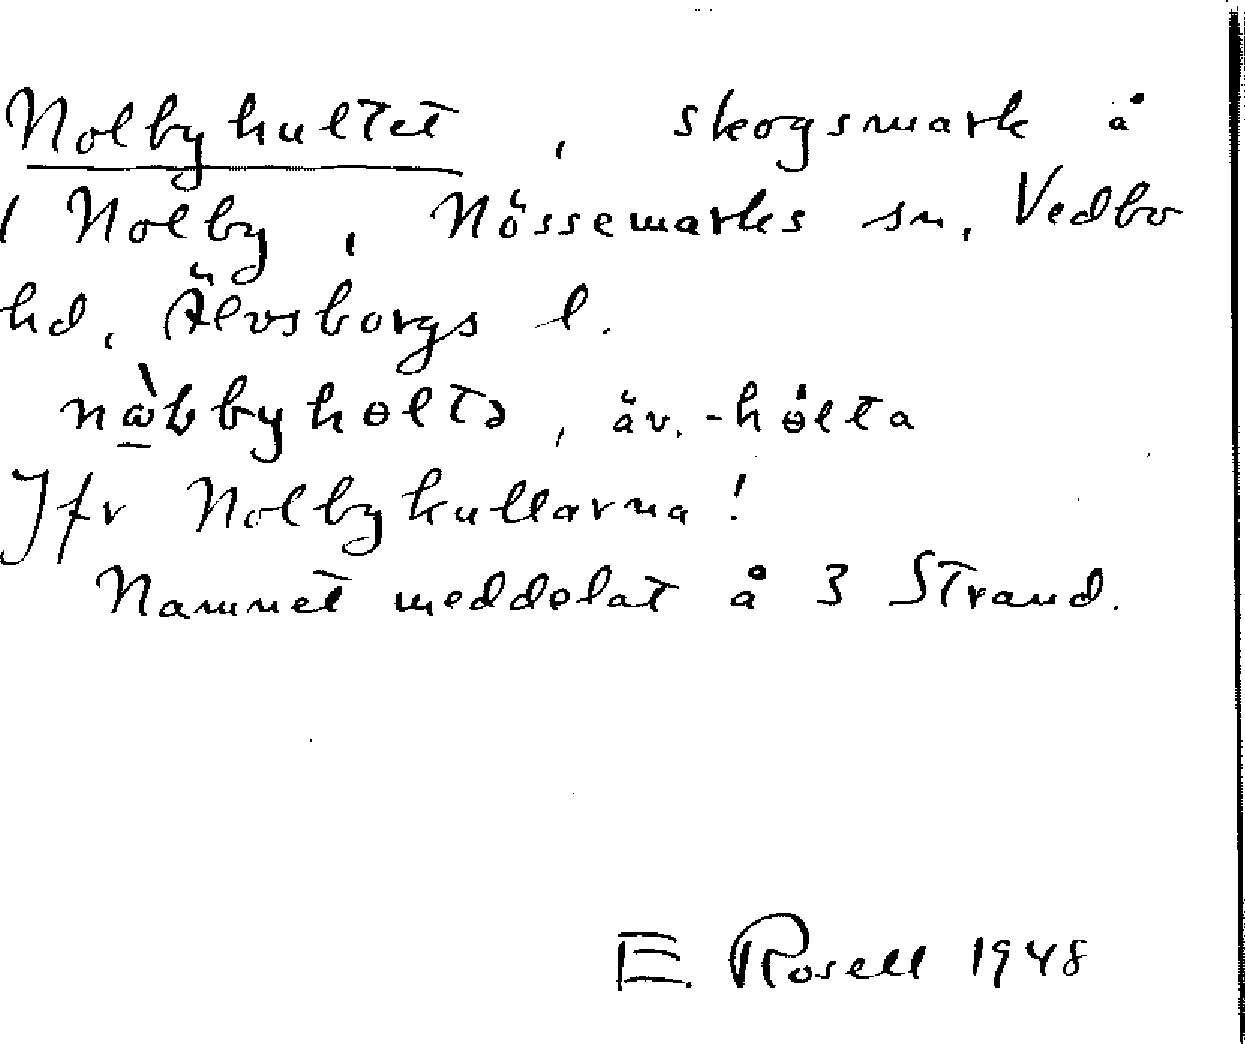 Nolbyhultet, skogsmark å
1 Nolby, Nössemarks sn, Vedbo
hd, Älvsborgs l.
nɷ̀bbyhɵltə, äv. -hɵ̀lta
Jfr Nolbykullarna!
Namnet meddelat å 3 Strand.
E. Rosell 1948